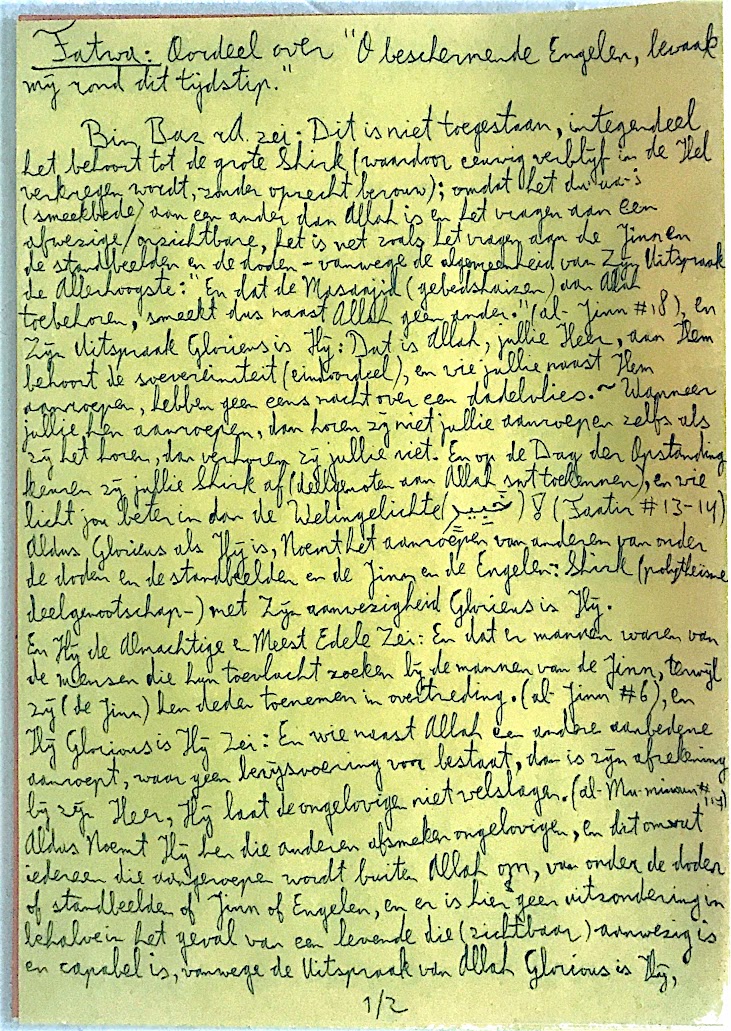 Fatwa: Oordeel over "O beschermende Engelen, bewaak
mij rond dit tijdstip."
Bin Baz r.A. zei: Dit is niet toegestaan, integendeel
het behoort tot de grote Shirk (waardoor eeuwig verblijf in de Hel
verkregen wordt, zonder oprecht berouw); omdat het du'aa-s
(smeekbede) aan een ander dan Allah is en het vragen aan een
afwezige/onzichtbare, het is net zoals het vragen aan de Jinn en
de standbeelden en de doden - vanwege de algemeenheid van Zijn Uitspraak
de Allerhoogste: "En dat de Masaajid (gebedshuizen) aan Allah
toebehoren, smeekt dus naast Allah geen ander." (al-Jinn #18), en
Zijn Uitspraak Glorieus is Hij: Dat is Allah, jullie Heer, aan Hem
behoort de soevereiniteit (eindoordeel), en wie jullie naast Hem
aanroepen, hebben geen eens macht over een dadelvlies. ~ Wanneer
jullie hen aanroepen, dan horen zij niet jullie aanroepen zelfs als
zij het horen, dan verhoren zij jullie niet. En op de Dag der Opstanding
keuren zij jullie Shirk af (deelgenoten aan Allah swt toekennen), en wie
licht jou beter in dan de Welingelichte (خبير)! (Faatir #13-14)
Aldus Glorieus als Hij is, Noemt het aanroepen van anderen van onder
de doden en de standbeelden en de Jinn en de Engelen: Shirk (polytheïsme
deelgenootschap-) met Zijn aanwezigheid Glorieus is Hij.
En Hij de Almachtige en Meest Edele Zei: En dat er mannen waren van
de mensen die hun toevlucht zoeken bij de mannen van de Jinn, terwijl
zij (de Jinn) hen deden toenemen in overtreding. (al-Jinn #6), en
Hij Glorious is Hij Zei: En wie naast Allah een andere aanbedene
aanroept, waar geen bewijsvoering voor bestaat, dan is zijn afrekening
bij zijn Heer, Hij laat de ongelovigen niet welslagen. (al-Mu-minoun #117)
Aldus Noemt Hij hen die anderen afsmeken ongelovigen, en dit omvat
iedereen die aangeroepen wordt buiten Allah om, van onder de doden
of standbeelden of Jinn of Engelen, en er is hier geen uitzondering in
behalve in het geval van een levende die (zichtbaar) aanwezig is
en capabel is, vanwege de Uitspraak van Allah Glorious is Hij,
1/2